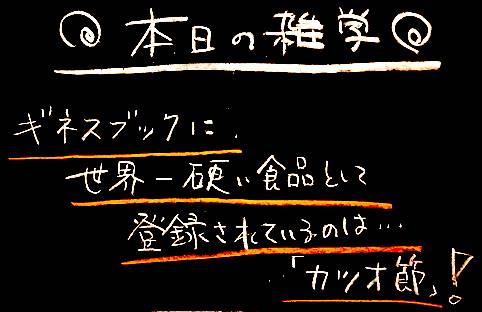 本日の雑学
ギネスブックに
世界一硬い食品として
登録されているのは…
「カツオ節」!